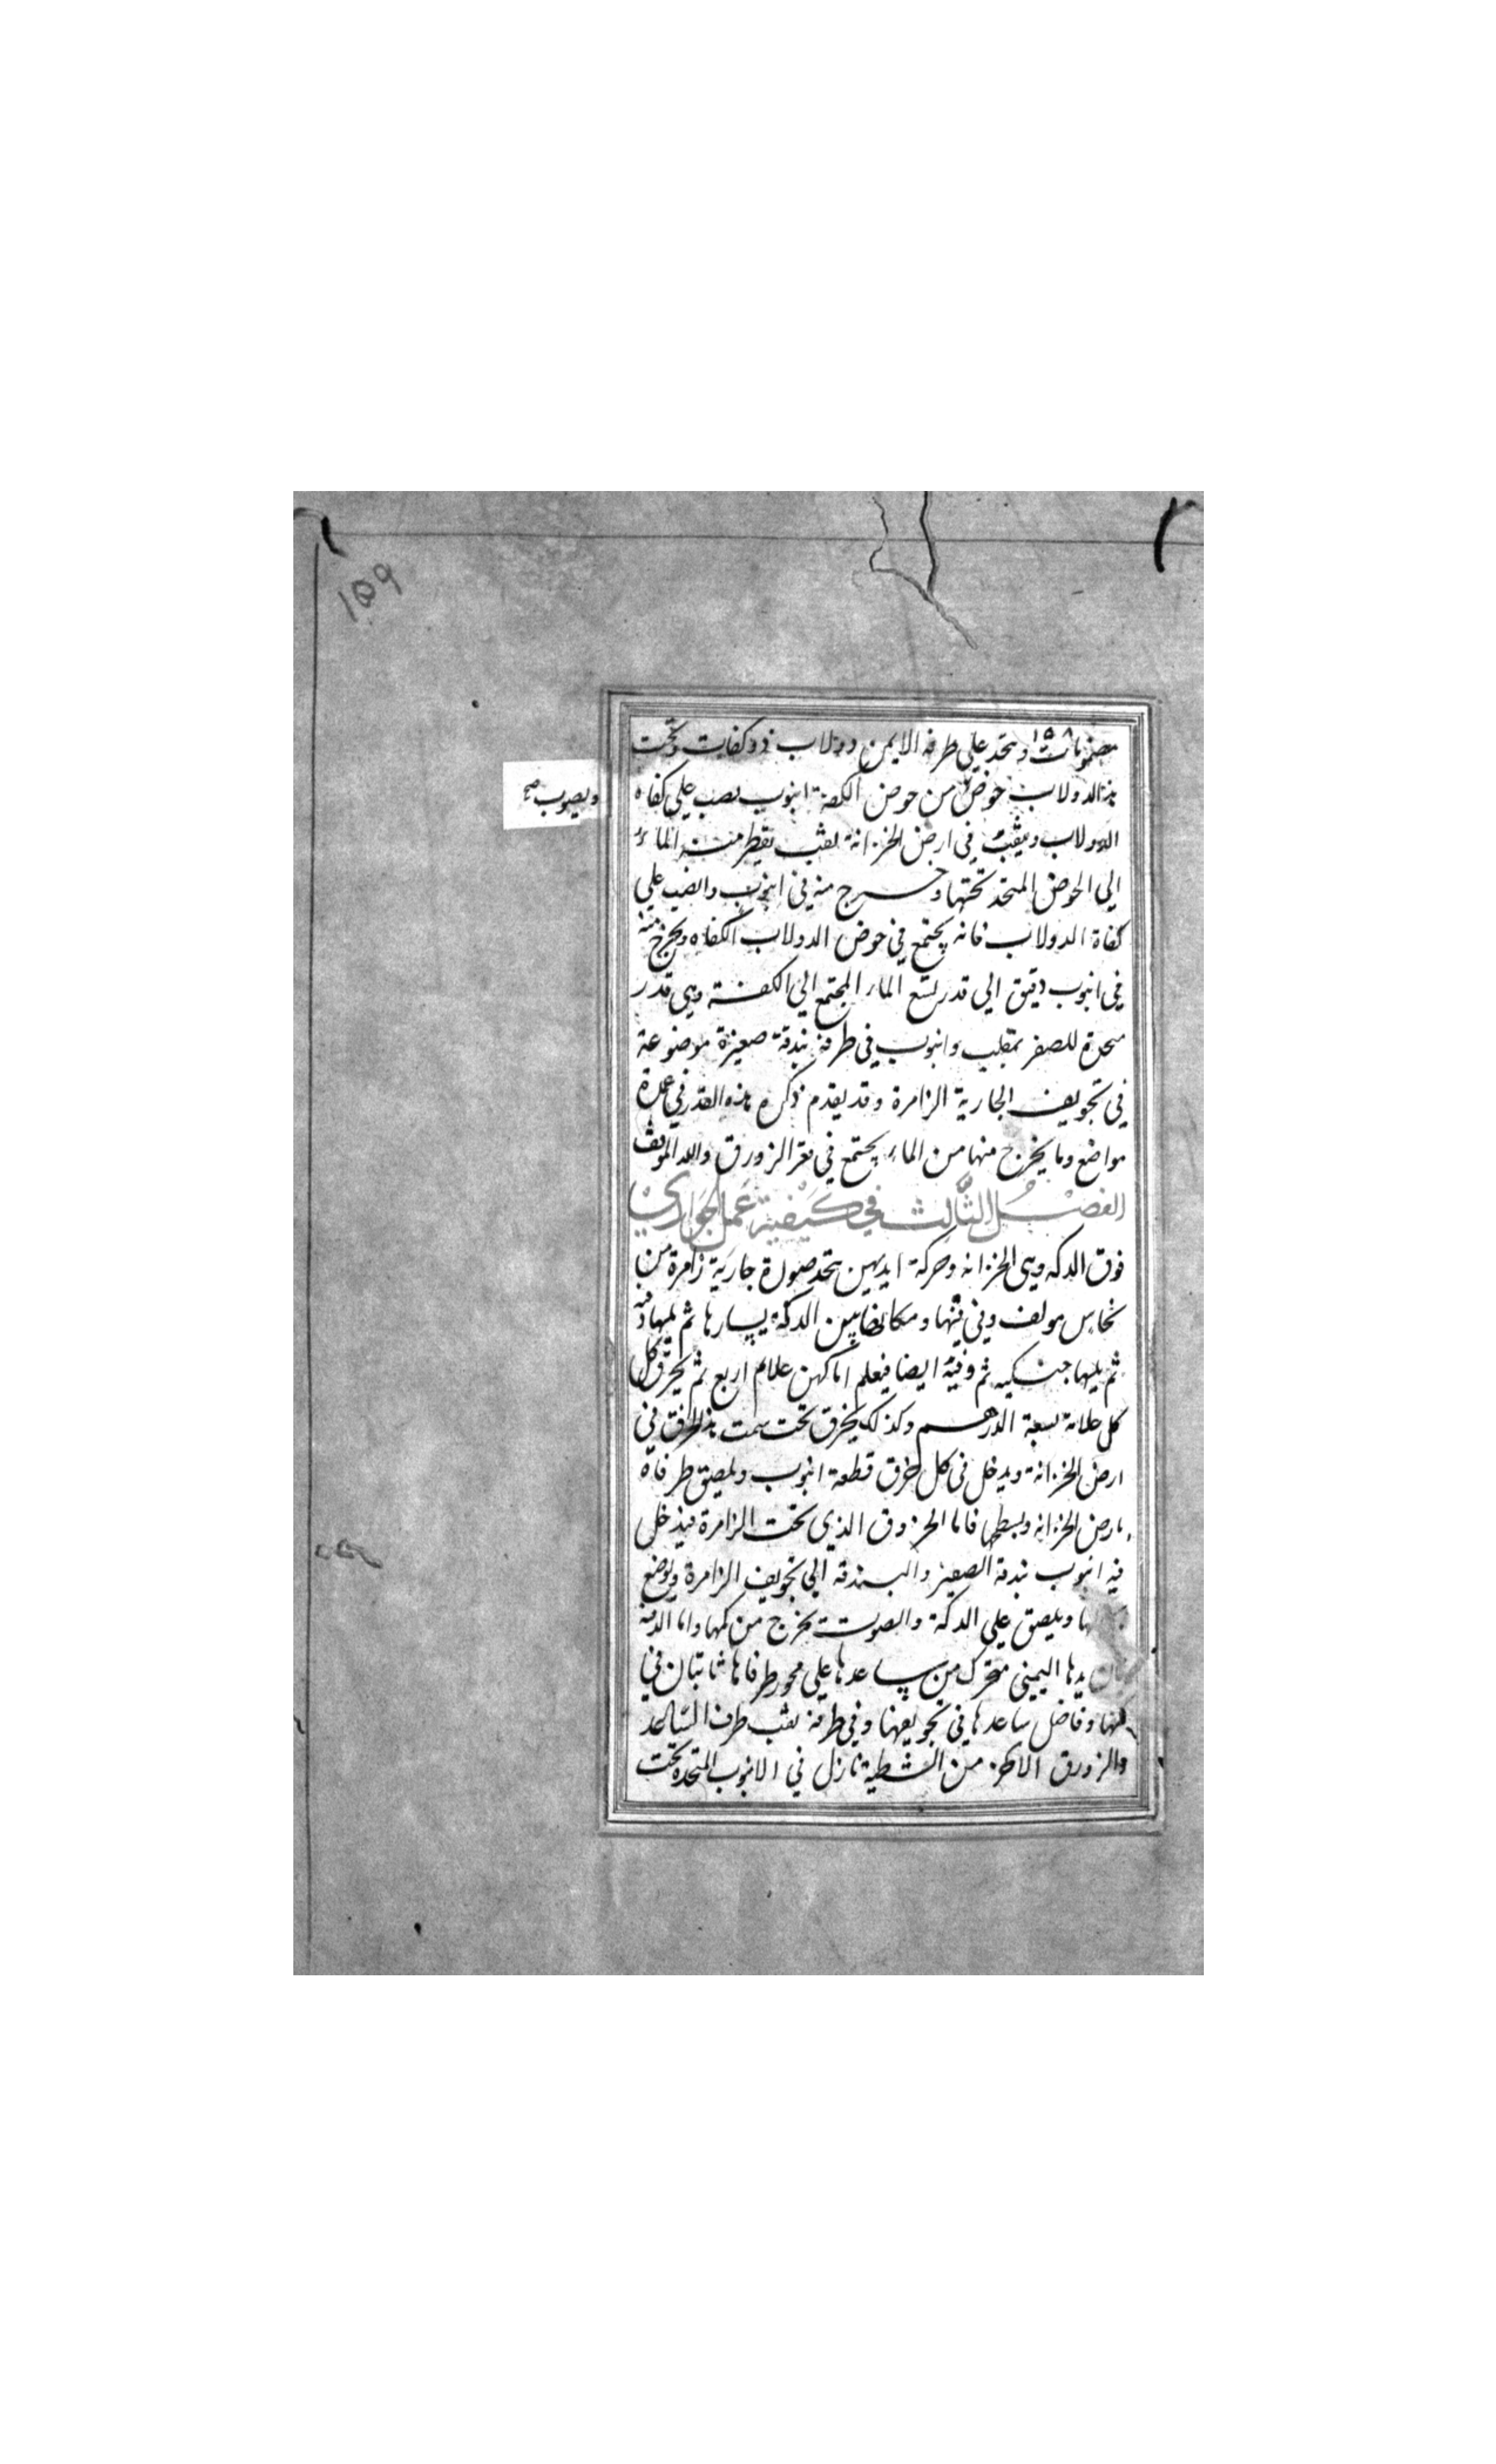 ١٥٩
١٥٨
مضمومات ويتخذ على طرفه الايمن دولاب ذو كفات وتحت
هذا الدولاب حوض من حوض الكفة انبوب يصب على كفاه
ويصوب صح
الدولاب ويثقب في ارض الخزانة ثقب يقطر منه الماء
الى الحوض المتخذ تحتها وخرج منه في انبوب وانصب على
كفاة الدولاب فانه يجتمع في حوض الدولاب الكفاه ويخرج منه
في انبوب دقيق الى قدر تسع الماء المجتمع الى الكفة وهى قدر
متخذة للصفر بمقلب وانبوب في طرفه بندقة صغيرة موضوعة
في تجويف الجارية الزامرة وقد يقدم ذكره هذه القدر في عدة
مواضع وما يخرج منها من الماء يجتمع في قعر الزورق والله الموفق
الفصل الثالث في كيفية عمل الجواري
فوق الدكه وهى الخزانه وحركة ايديهن يتخذ صورة جارية زامرة من
نحاس مولف وفي فيها ومكانها بين الدكة يسارها ثم يليها دفيه
ثم يليها جنكيه ثم دفية ايضا فيعلم اماكهن علائم اربع ثم يخرق كل
كل علامة بسعة الدرهم وكذلك يخرق تحت سمت هذا الخرق في
ارض الخزانة ويدخل في كل خرق قطعة انبوب ويلصق طرفاه
بارض الخزانه وبسطها فاما الخروق الذي تحت الزامرة فيدخل
فيه انبوب بندقة الصفير والبندقه الى تجويف الزامرة ويوضع
ويلصق على الدكة والصوت يخرج من كمها واما الدفيه
فان يدها اليمنى متحرك من ساعدها على محور طرفاها ثابتان في
كمها وفاضل ساعدها في تجويفها وفي طرفه ثقب طرف الساعد
والزورق الاخر من الشظية نازل في الانبوب المتخدة تحت